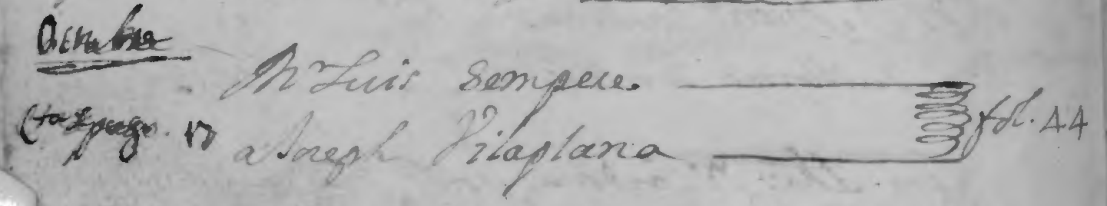 Octubre
Mn Luis Sempere.
Cta de pago. 17 a Joseph Vilaplana fol. 44